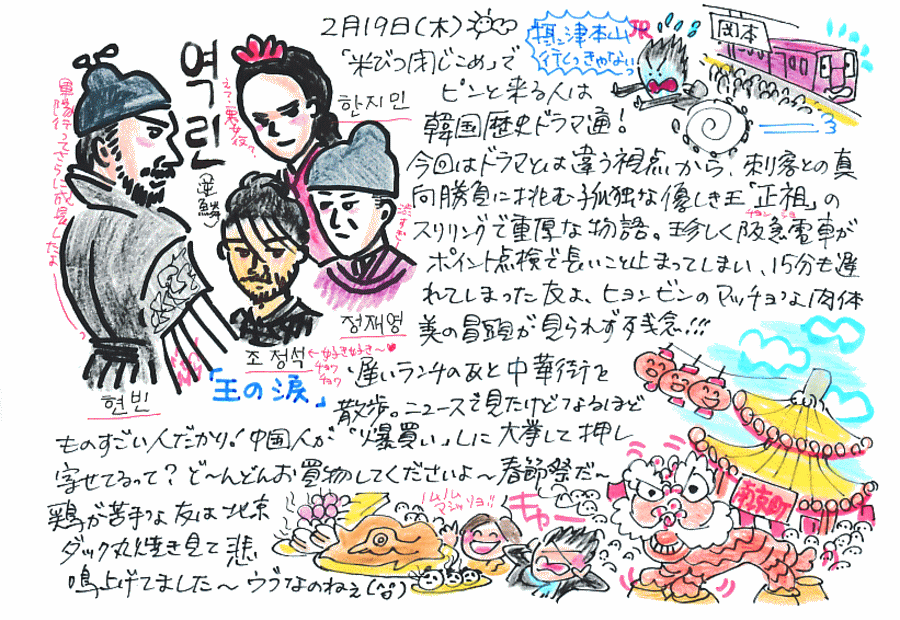 2月19日(木)
「米びつ閉じこめ」で
ピンと来る人は
韓国歴史ドラマ通！
今回はドラマとは違う視点から、刺客との真
向勝負に挑む孤独な優しき王「正祖」の
チョンジョ
スリリングで重厚な物語。珍しく阪急電車が
ポイント点検で長いこと止まってしまい、15分も遅
れてしまった友よ、ヒョンビンのマッチョな肉体
美の冒頭が見られず残念!!!
遅いランチのあと中華街を
散歩。ニュースで見たけどなるほど
ものすごい人だかり！中国人が「爆買い」しに大挙して押し
寄せてるって？ど〜んどんお買物してくださいよ〜春節祭だ〜
鶏が苦手な友は北京
ダック丸焼き見て悲
鳴上げてました〜ウブなのねぇ(笑)
역린
(逆鱗)
軍隊行ってさらに成長したよ
え?悪女役?
한지민
渋すぎ
정재영
조정석
←好き好き〜♥
チョウチョウ
현빈
「王の涙」
JR
摂津本山
行くっきゃないっ
岡本
キャー
南京町